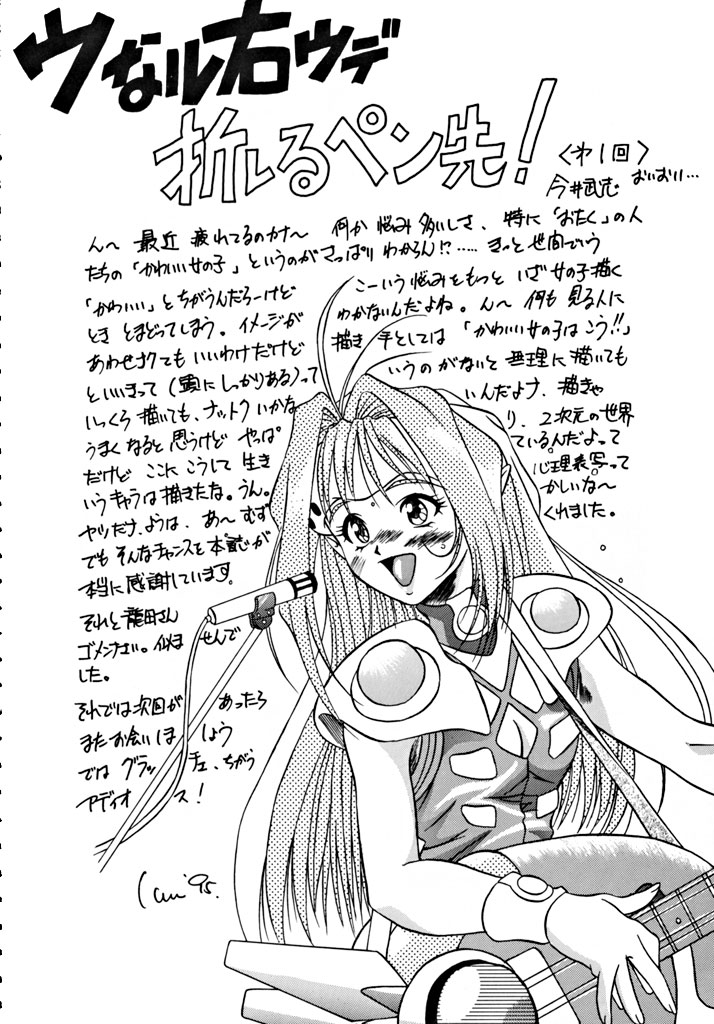 ウなル右ウデ
折れるペン先!
〈才1回〉
今井武志
おいおい…
ん〜 最近 疲れてるのカナ〜 何か 悩み 多いしさ、特に「おたく」の人
たちの「かわいい女の子」というのがさっぱり わからん!?…… きっと 世間でいう
「かわいい」とちがうんだろーけど こーいう悩みをもっと いざ 女の子描く
とき とまどってしまう。イメージが わかないんだよね。ん〜 何も 見る人に
あわせナクても いいわけだけど 描き 手としては「かわいい女の子はこう!!」
といいきって(頭に しっかりある)って いうの がないと 無理に描いても
しっくら 描いても、ナットク いかな いんだよナ、描きゃ
うまく なると 思うけど やっぱ り、2次元の世界
だけど ここに こうして 生き ているんだよって
いうキャラは描きたな。うん。 心理表写って
ヤツだナ、ようは、あ〜 むず かしいな〜
でも そんなチャンスを 本誌が くれました。
本当に 感謝しています。
それと 龍田さん
ゴメンナサい。似ませんで
した。
それでは次回が あったら
またお会いしましょう
では グラッチェ、ちがう
アディオス!